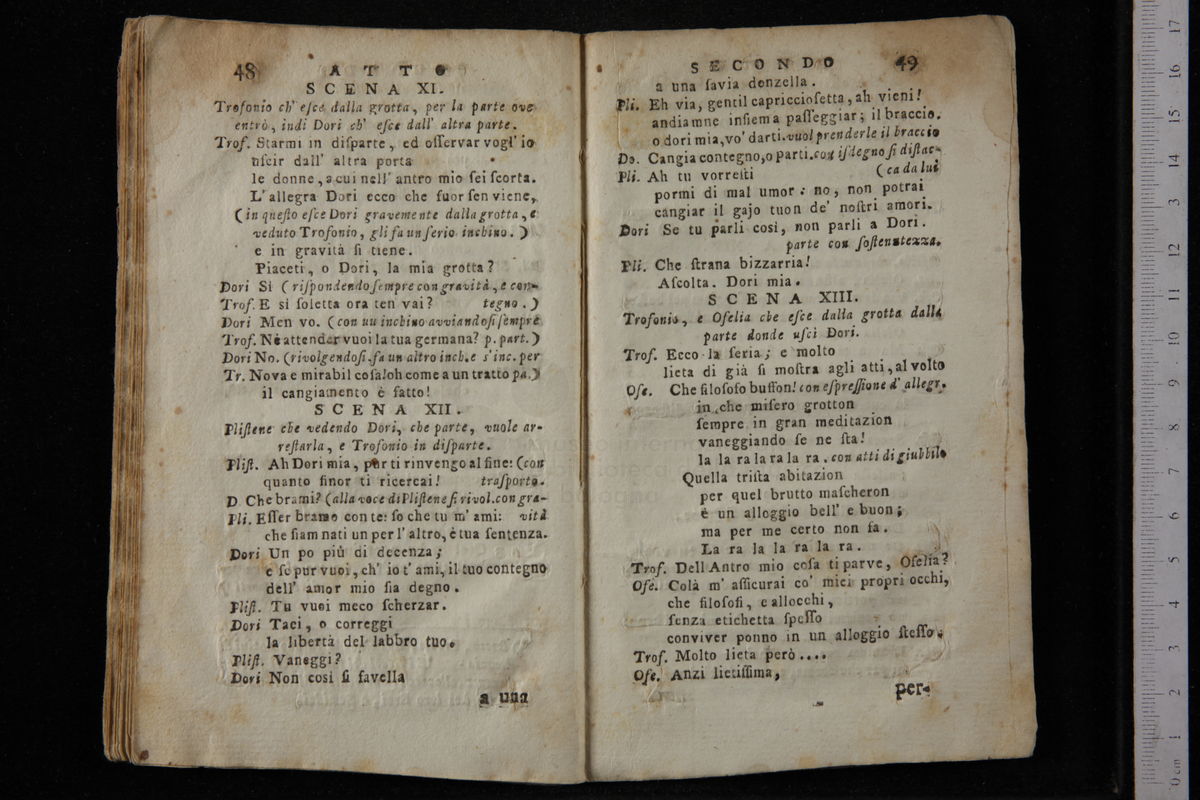 48
ATTO
SCENA XI.
Trofonio ch' eſce dalla grotta, per la parte ove
entrò, indi Dori ch' eſce dall' altra parte.
Trof. Starmi in diſparte, ed oſſervar vogl' io
uſcir dall' altra porta
le donne, a cui nell' antro mio ſei ſcorta.
L'allegra Dori ecco che fuor ſen viene,
(in queſto eſce Dori gravemente dalla grotta, e
veduto Trofonio, gli fa un ſerio inchino.)
e in gravità ſi tiene.
Piaceti, o Dori, la mia grotta?
Dori Sì (riſpondendo ſempre con gravità, e con-
Trof. E sì ſoletta ora ten vai? tegno.)
Dori Men vo. (con uu inchino avviandoſi ſempre
Trof. Nè attender vuoi la tua germana? p. part.)
Dori No. (rivolgendoſi. fa un altro inch. e s'inc. per
Tr. Nova e mirabil coſa! oh come a un tratto pa.)
il cangiamento è fatto!
SCENA XII.
Pliſtene che vedendo Dori, che parte, vuole ar-
reſtarla, e Trofonio in diſparte.
Pliſt. Ah Dori mia, pur ti rinvengo al fine: (con
quanto finor ti ricercai! traſporto.
D. Che brami? (alla voce di Pliſtene ſi rivol. con gra-
Pli. Eſſer bramo con te: ſo che tu m' ami: vità
che ſiam nati un per l' altro, è tua ſentenza.
Dori Un po più di decenza;
e ſe pur vuoi, ch' io t' ami, il tuo contegno
dell' amor mio ſia degno.
Pliſt. Tu vuoi meco ſcherzar.
Dori Taci, o correggi
la libertà del labbro tuo.
Pliſt. Vaneggi?
Dori Non così ſi favella
a una
SECONDO
49
a una ſavia donzella.
Pli. Eh via, gentil capriccioſetta, ah vieni!
andiamne inſiema paſſeggiar; il braccio.
o dori mia, vo' darti. vuol prenderle il braccio
Do. Cangia contegno, o parti. con iſdegno ſi diſtac-
Pli. Ah tu vorreſti (ca da lui
pormi di mal umor: no, non potrai
cangiar il gajo tuon de' noſtri amori.
Dori Se tu parli così, non parli a Dori.
parte con ſoſtenutezza.
Pli. Che ſtrana bizzarria!
Aſcolta. Dori mia.
SCENA XIII.
Trofonio, e Ofelia che eſce dalla grotta dalla
parte donde uſcì Dori.
Trof. Ecco la ſeria; e molto
lieta di già ſi moſtra agli atti, al volto
Ofe. Che filoſofo buffon! con eſpreſſione d' allegr.
in che miſero grotton
ſempre in gran meditazion
vaneggiando ſe ne ſta!
la la ra la ra la ra. con atti di giubbilo
Quella triſta abitazion
per quel brutto maſcheron
è un alloggio bell' e buon;
ma per me certo non fa.
La ra la la ra la ra.
Trof. Dell Antro mio coſa ti parve, Ofelia?
Ofe. Colà m' aſſicurai co' miei propri occhi,
che filoſofi, e allocchi,
ſenza etichetta ſpeſſo
conviver ponno in un alloggio ſteſſo.
Trof. Molto lieta però....
Ofe. Anzi lietiſſima,
per-